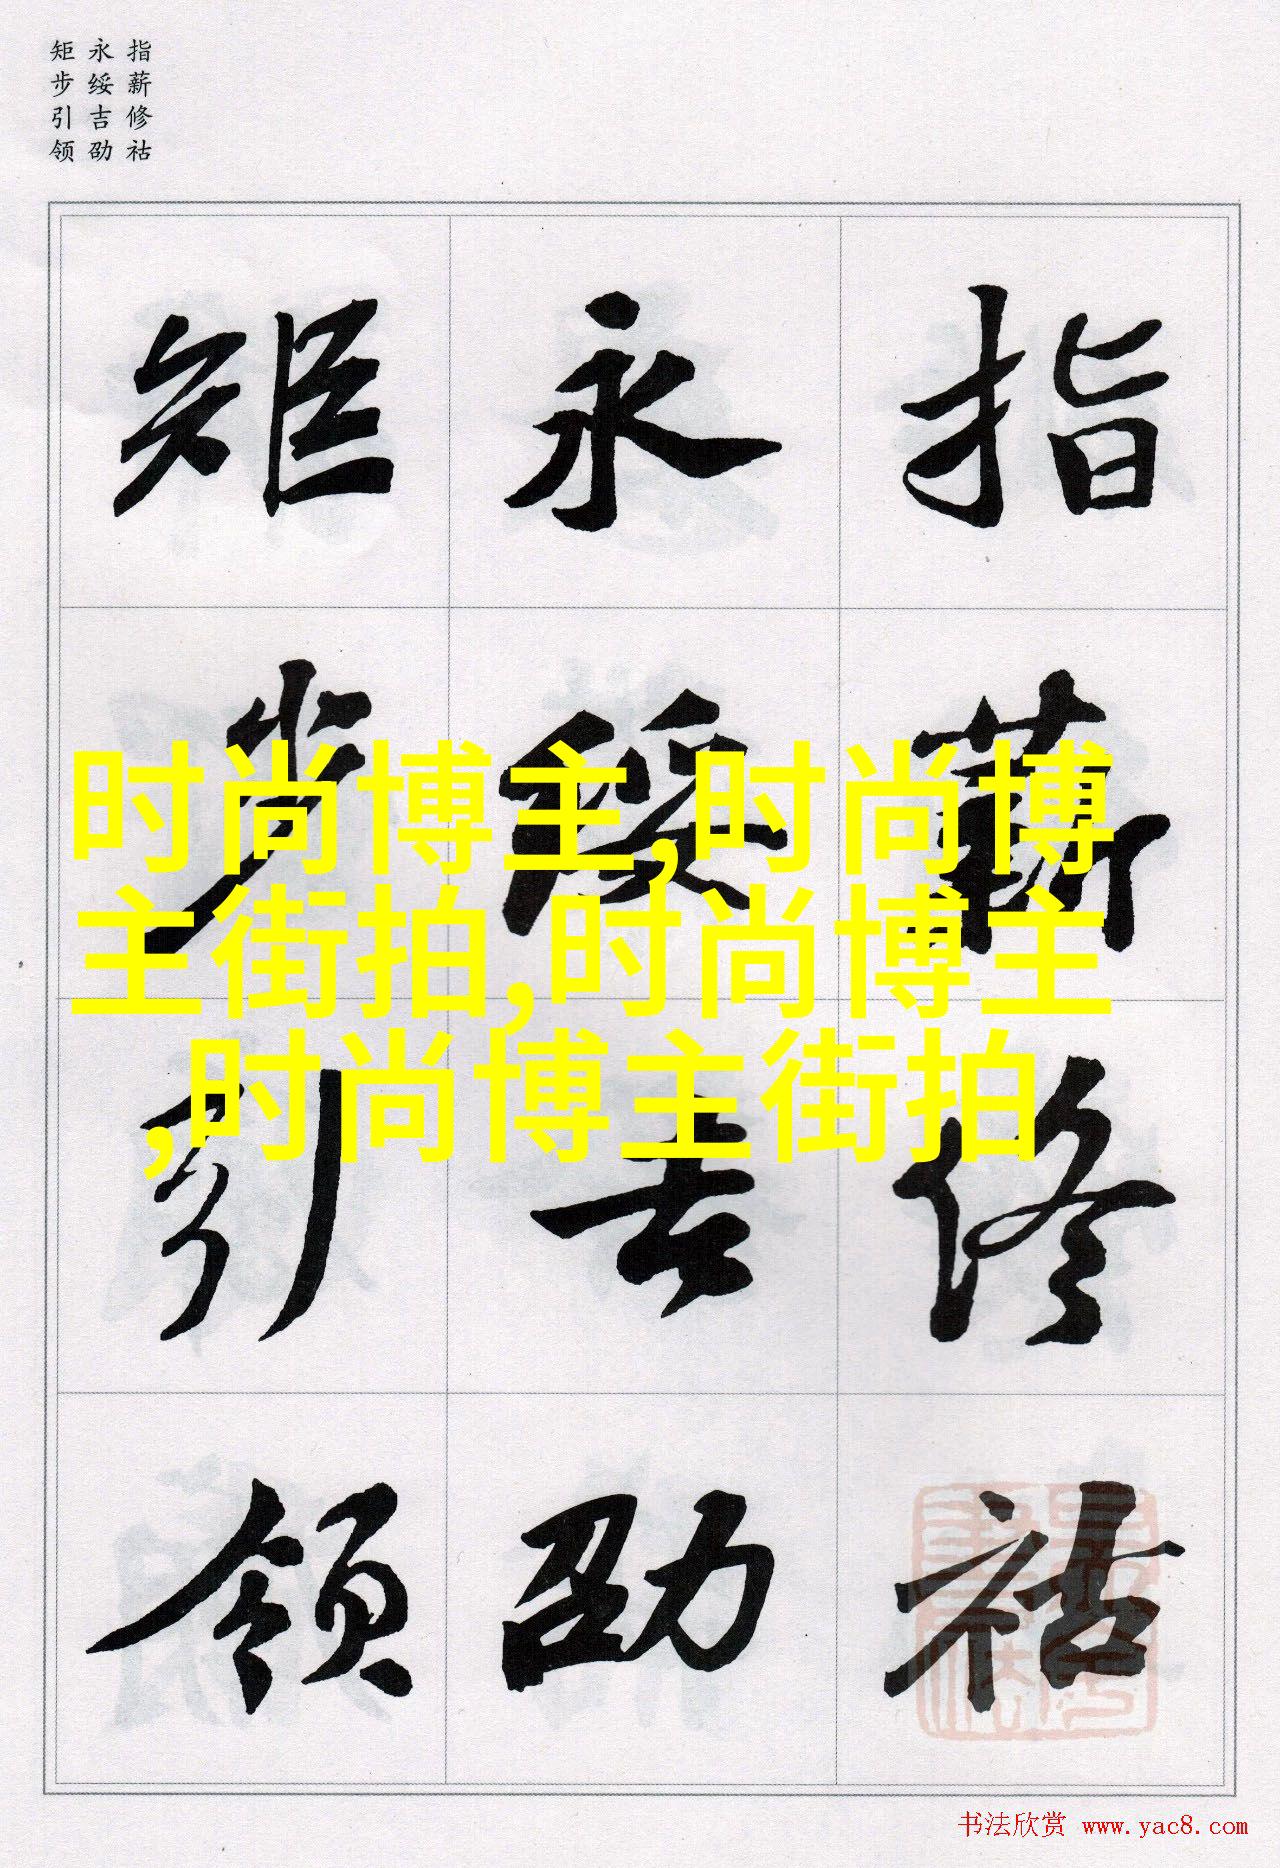 指薪修祜
永绥吉劭
矩步引领
指薪修祜
永绥吉劭
矩步引领
时尚博主,时尚博
主街拍,时尚博主
,时尚博主街拍
书法欣赏 www.yac8.com